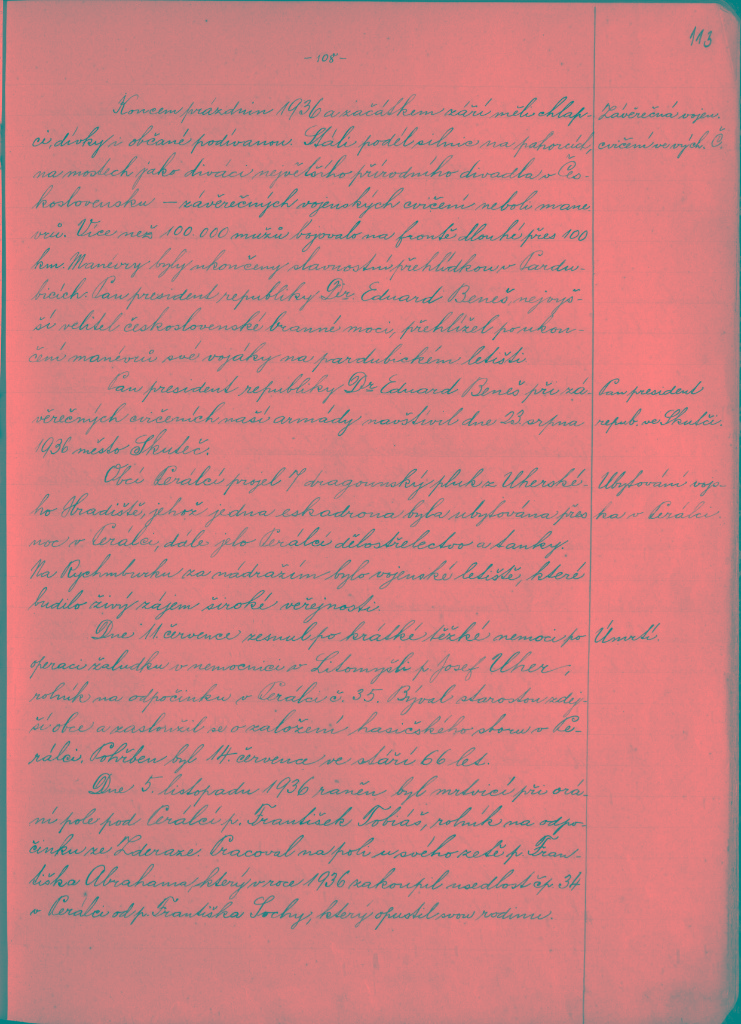 113
- 108 -
Koncem prázdnin 1936 a začátkem září měli chlap-
ci, dívky i občané podívanou. Stáli podél silnic na pahorcích,
na mostech jako diváci největšího přírodního divadla v Čes-
koslovensku – závěrečných vojenských cvičení neboli mane-
vrů. Více než 100.000 mužů bojovalo na frontě dlouhé přes 100
km. Manévry byly ukončeny slavnostní přehlídkou v Pardu-
bicích. Pan president republiky Dr. Eduard Beneš, nejvyš-
ší velitel československé branné moci, přehlížel po ukon-
čení manévrů své vojáky na pardubickém letišti.
Pan president republiky Dr Eduard Beneš při zá-
věrečných cvičeních naší armády navštívil dne 23. srpna
1936 město Skuteč.
Obcí Perálcí projel 7 dragounský pluk z Uherské-
ho Hradiště, jehož jedna eskadrona byla ubytována přes
noc v Perálci, dále jelo Perálcí dělostřelectvo a tanky.
Na Rychmburku za nádražím bylo vojenské letiště, které
budilo živý zájem široké veřejnosti.
Dne 11. července zesnul po krátké těžké nemoci po
operaci žaludku v nemocnici v Litomyšli p. Josef Uher,
rolník na odpočinku v Perálci č. 35. Býval starostou zdej-
ší obce a zasloužil se o založení hasičského sboru v Pe-
rálci. Pohřben byl 14. července ve stáří 66 let.
Dne 5. listopadu 1936 raněn byl mrtvicí při orá-
ní pole pod Perálcí p. František Tobiáš, rolník na odpo-
činku ze Zderaze. Pracoval na poli u svého zetě p. Fran-
tiška Abrahama, který v roce 1936 zakoupil usedlost čp. 34
v Perálci od p. Františka Sochy, který opustil svou rodinu.
Závěrečná vojen.
cvičení ve vých. Č.
Pan president
repub. ve Skutči.
Ubytování vojs-
ka v Perálci.
Úmrtí.